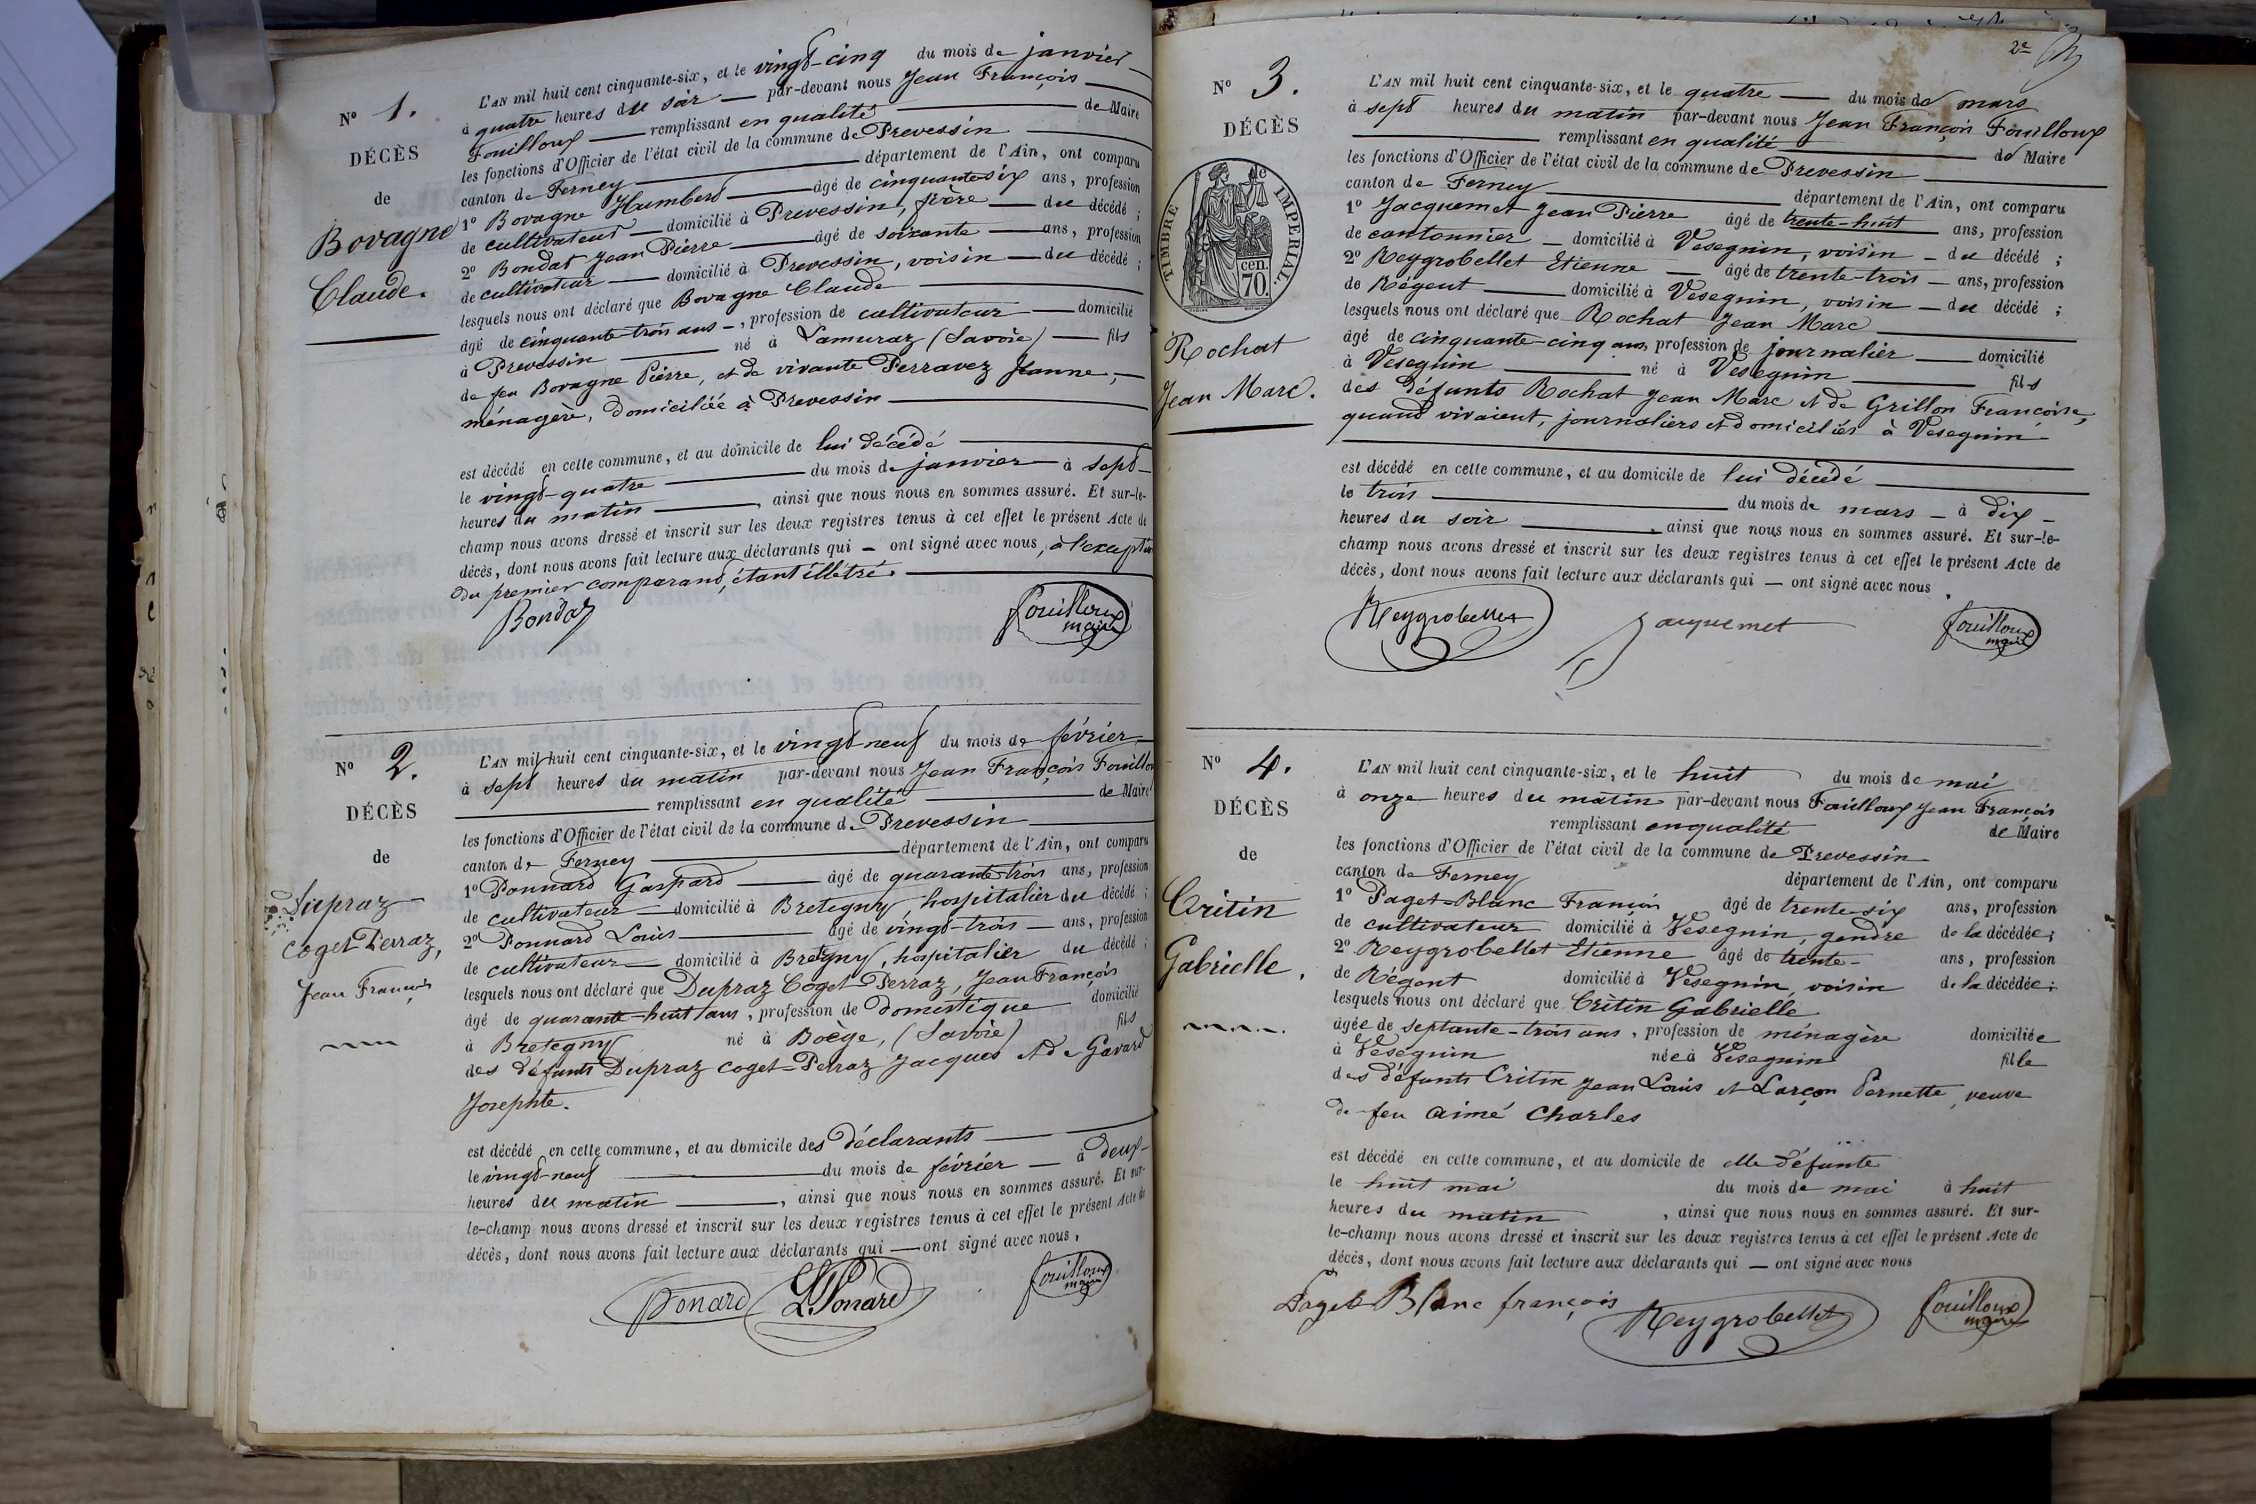 Nº 1.
DÉCÈS
de
Bovagne
Claude.
L'AN mil huit cent cinquante-six, et le vingt-cinq du mois de janvier
à quatre heures du soir — par-devant nous Jean François
Fouilloux — remplissant en qualité — de Maire
les fonctions d'Officier de l'état civil de la commune de Prevessin
canton de Ferney — département de l'Ain, ont comparu
1º Bovagne Humbert — âgé de cinquante six ans, profession
de cultivateur — domicilié à Prevessin, frère — du décédé ;
2º Bondat Jean Pierre — âgé de soixante — ans, profession
de cultivateur — domicilié à Prevessin, voisin — du décédé ;
lesquels nous ont déclaré que Bovagne Claude
âgé de cinquante-trois ans —, profession de cultivateur — domicilié
à Prevessin — né à Lamuraz (Savoie) — fils
de feu Bovagne Pierre, et de vivante Perravez Jeanne, —
ménagère, domiciliée à Prevessin —
est décédé en cette commune, et au domicile de lui décédé —
le vingt-quatre — du mois de janvier — à sept —
heures du matin —, ainsi que nous nous en sommes assuré. Et sur-le-
champ nous avons dressé et inscrit sur les deux registres tenus à cet effet le présent Acte de
décès, dont nous avons fait lecture aux déclarants qui — ont signé avec nous, à l'exception
du premier comparand, étant illétré. —
Bondaz
fouilloux
maire
Nº 2.
DÉCÈS
de
Dupraz
Coget-Perraz,
Jean François
L'AN mil huit cent cinquante-six, et le vingt-neuf du mois de février
à sept heures du matin par-devant nous Jean François Fouilloux
— remplissant en qualité — de Maire
les fonctions d'Officier de l'état civil de la commune de Prevessin
canton de Ferney — département de l'Ain, ont comparu
1º Ponnard Gaspard — âgé de quarante trois ans, profession
de cultivateur — domicilié à Bretegny hospitalier du décédé ;
2º Ponnard Louis — âgé de vingt-trois — ans, profession
de cultivateur — domicilié à Bretegny, hospitalier du décédé ;
lesquels nous ont déclaré que Dupraz Coget-Perraz, Jean François
âgé de quarante-huit ans, profession de domestique domicilié
à Bretegny né à Boëge, (Savoie) fils
des défunts Dupraz Coget-Perraz Jacques et de Gavard
Josephte.
est décédé en cette commune, et au domicile des déclarants —
le vingt-neuf — du mois de février — à deux —
heures du matin —, ainsi que nous nous en sommes assuré. Et sur-
le-champ nous avons dressé et inscrit sur les deux registres tenus à cet effet le présent Acte de
décès, dont nous avons fait lecture aux déclarants qui — ont signé avec nous.
Ponard
L. Ponard
fouilloux
maire
2e
Nº 3.
DÉCÈS
de
TIMBRE IMPERIAL.
cen.
70.
Rochat
Jean Marc.
L'AN mil huit cent cinquante-six, et le quatre — du mois de mars
à sept heures du matin par-devant nous Jean François Fouilloux
— remplissant en qualité — de Maire
les fonctions d'Officier de l'état civil de la commune de Prevessin —
canton de Ferney — département de l'Ain, ont comparu
1º Jacquemet Jean Pierre âgé de trente-huit — ans, profession
de cantonnier — domicilié à Vesegnin, voisin — du décédé ;
2º Reygrobellet Etienne — âgé de trente-trois — ans, profession
de Régent — domicilié à Vesegnin, voisin — du décédé ;
lesquels nous ont déclaré que Rochat Jean Marc —
âgé de cinquante-cinq ans, profession de journalier — domicilié
à Vesegnin — né à Vesegnin — fils
des défunts Rochat Jean Marc et de Grillon Francoise,
quand vivaient, journaliers et domiciliés à Vesegnin —
est décédé en cette commune, et au domicile de lui décédé —
le trois — du mois de mars — à dix —
heures du soir —, ainsi que nous nous en sommes assuré. Et sur-le-
champ nous avons dressé et inscrit sur les deux registres tenus à cet effet le présent Acte de
décès, dont nous avons fait lecture aux déclarants qui — ont signé avec nous.
Reygrobellet
Jacquemet
fouilloux
maire
Nº 4.
DÉCÈS
de
Critin
Gabrielle.
L'AN mil huit cent cinquante-six, et le huit du mois de mai
à onze heures du matin par-devant nous Fouilloux Jean François
remplissant en qualité de Maire
les fonctions d'Officier de l'état civil de la commune de Prevessin
canton de Ferney département de l'Ain, ont comparu
1º Paget-Blanc François âgé de trente-six ans, profession
de cultivateur domicilié à Vesegnin, gendre de la décédée ;
2º Reygrobellet Etienne âgé de trente — ans, profession
de Régent domicilié à Vesegnin, voisin de la décédée ;
lesquels nous ont déclaré que Critin Gabrielle
âgée de septante-trois ans, profession de ménagère domiciliée
à Vesegnin née à Vesegnin fille
des défunts Critin Jean Louis et Larçon Pernette, veuve
de feu Aimé Charles
est décédé en cette commune, et au domicile de elle défunte
le huit mai du mois de mai à huit
heures du matin, ainsi que nous nous en sommes assuré. Et sur-
le-champ nous avons dressé et inscrit sur les deux registres tenus à cet effet le présent Acte de
décès, dont nous avons fait lecture aux déclarants qui — ont signé avec nous
Paget Blanc françois
Reygrobellet
fouilloux
maire